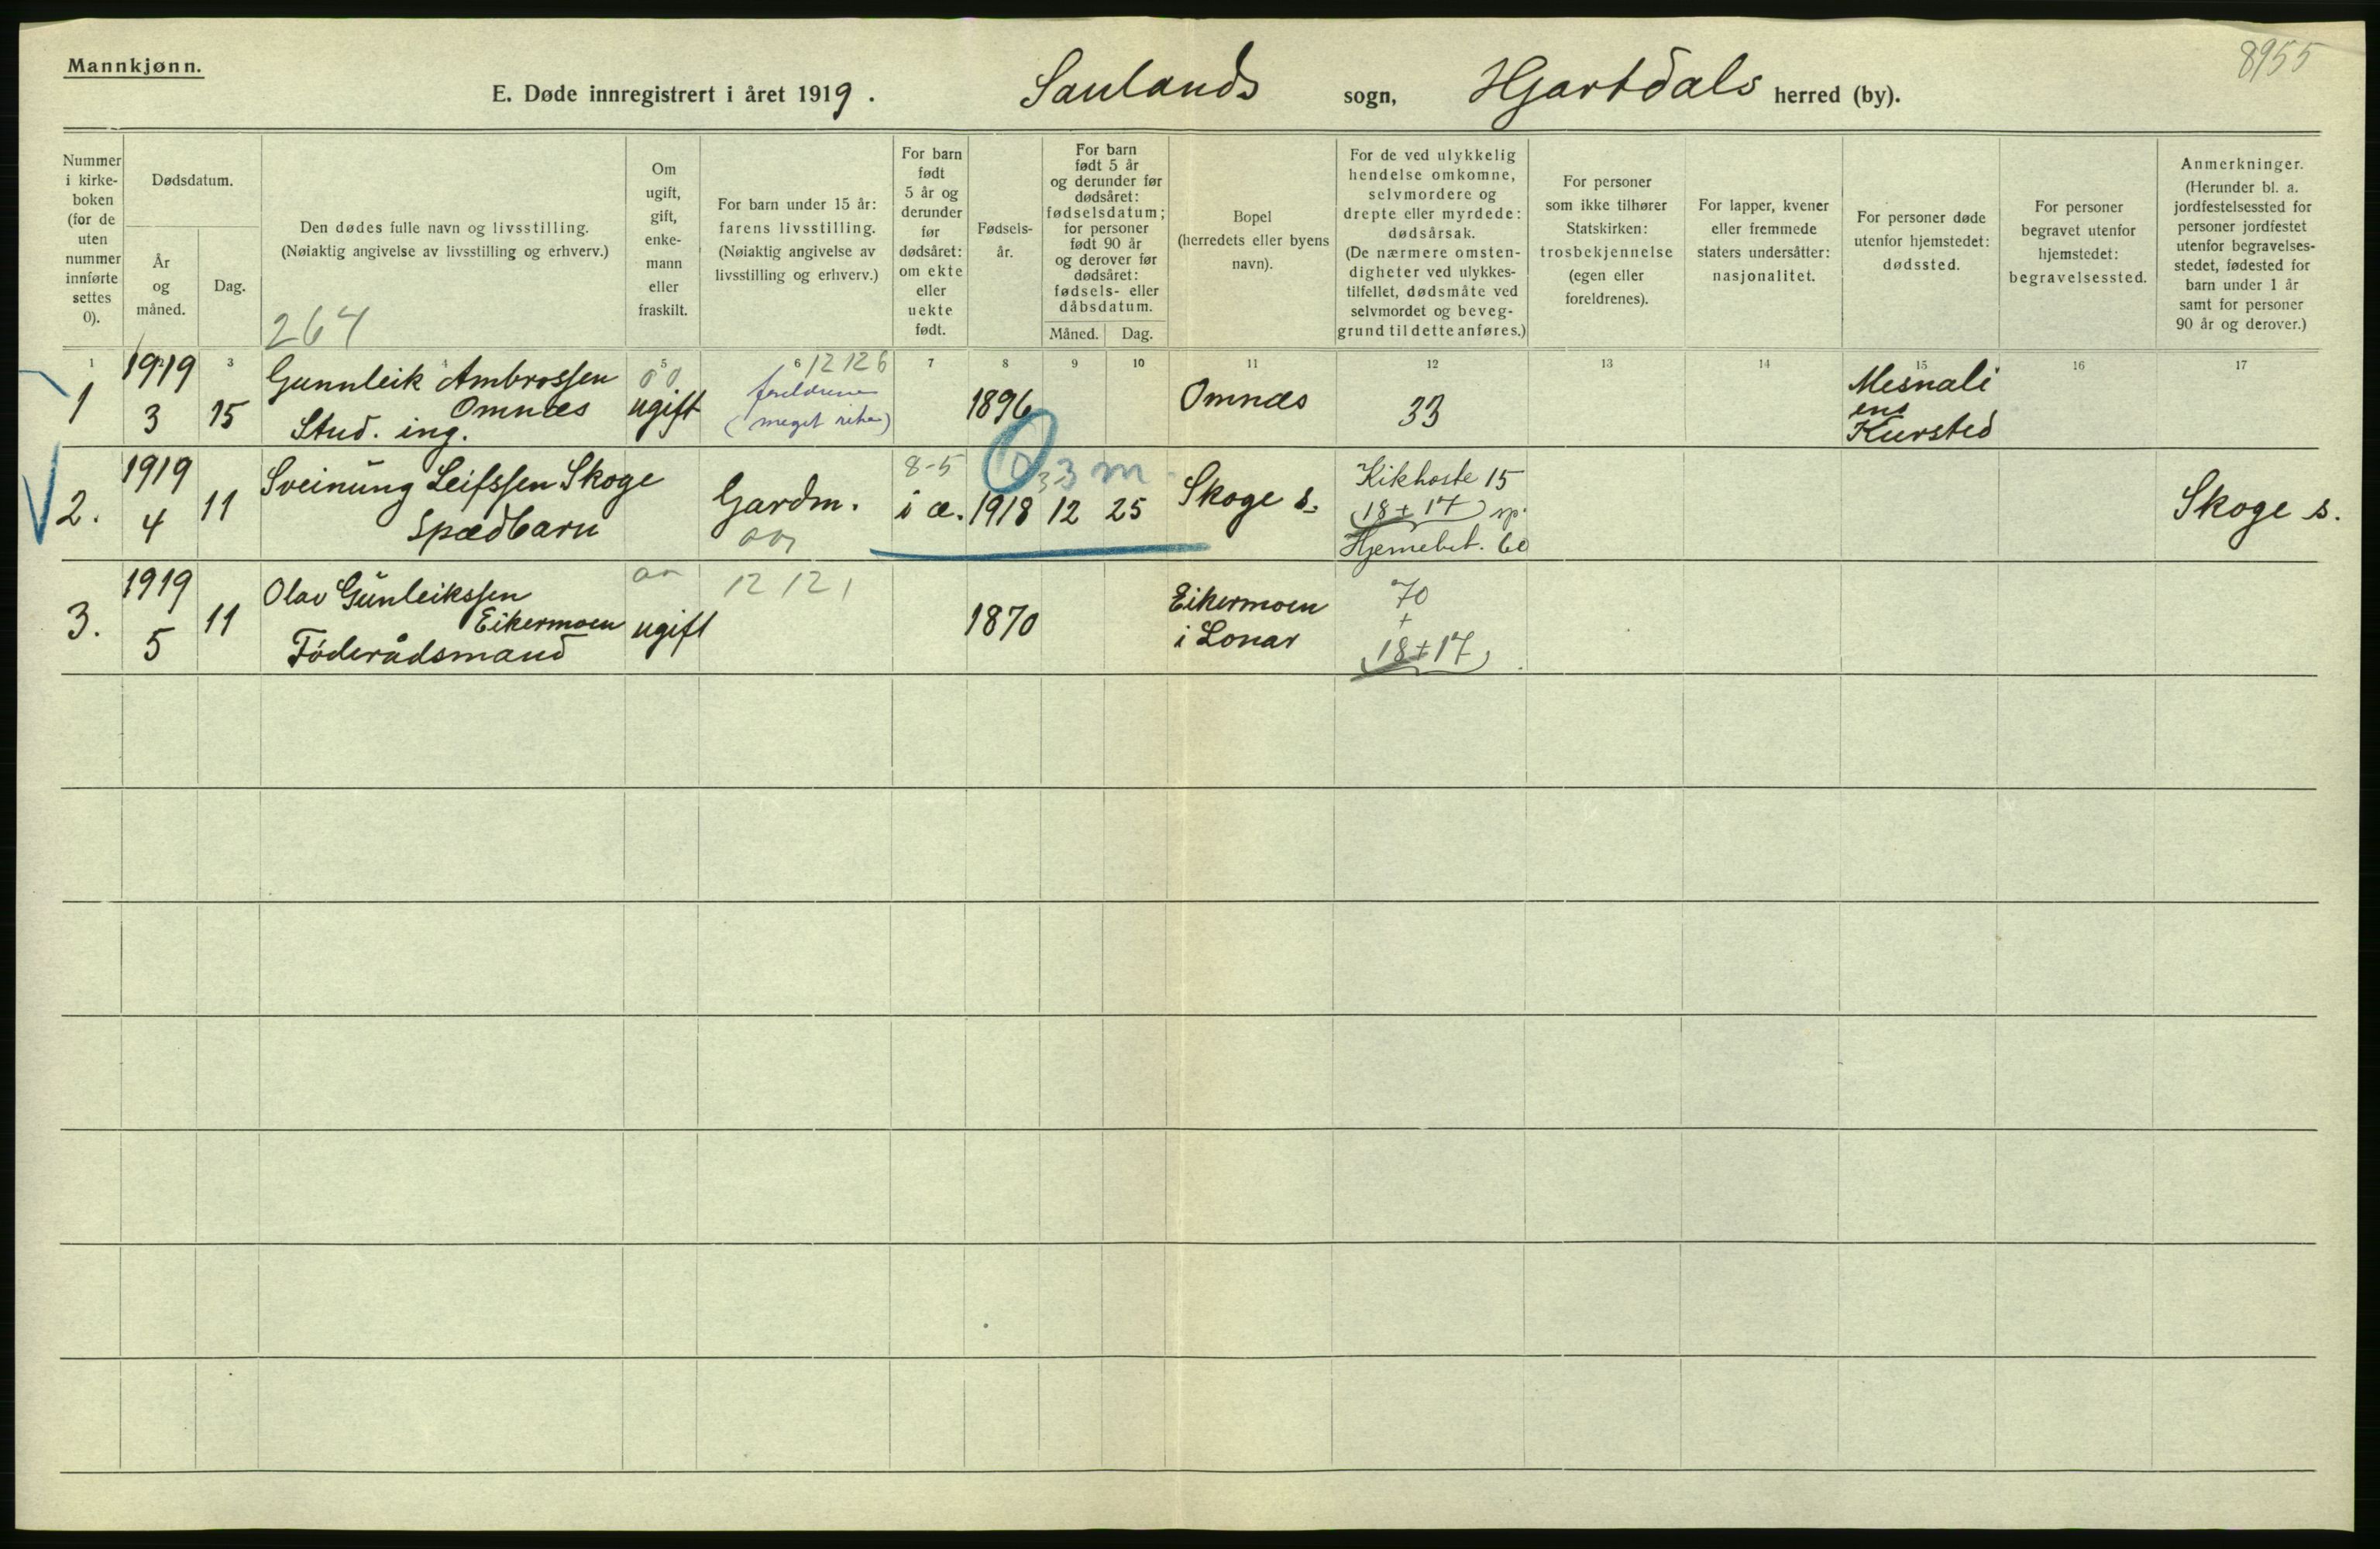 8955
Mannkjønn.
E. Døde innregistrert i året 1919. Saulands sogn, Hjartdals herred (by).
Nummer
i kirke-
boken
(for de
uten
nummer
innførte
settes
0).
Dødsdatum.
År
og
måned.
Dag.
Den dødes fulle navn og livsstilling.
(Nøiaktig angivelse av livsstilling og erhverv.)
264
Om
ugift,
gift,
enke-
mann
eller
fraskilt.
For barn under 15 år:
farens livsstilling.
(Nøiaktig angivelse av
livsstilling og erhverv.)
For barn
født
5 år og
derunder
før
dødsåret:
om ekte
eller
uekte
født.
Fødsels-
år.
For barn
født 5 år
og derunder før
dødsåret:
fødselsdatum;
for personer
født 90 år
og derover før
dødsåret:
fødsels- eller
dåbsdatum.
Måned. Dag.
Bopel
(herredets eller byens
navn).
For de ved ulykkelig
hendelse omkomne,
selvmordere og
drepte eller myrdede:
dødsårsak.
(De nærmere omsten-
digheter ved ulykkes-
tilfellet, dødsmåte ved
selvmordet og beveg-
grund til dette anføres.)
For personer
som ikke tilhører
Statskirken:
trosbekjennelse
(egen eller
foreldrenes).
For lapper, kvener
eller fremmede
staters undersåtter:
nasjonalitet.
For personer døde
utenfor hjemstedet:
dødssted.
For personer
begravet utenfor
hjemstedet:
begravelsessted.
Anmerkninger.
(Herunder bl. a.
jordfestelsessted for
personer jordfestet
utenfor begravelses-
stedet, fødested for
barn under 1 år
samt for personer
90 år og derover.)
1 3 5 6 7 8 9 10 11 12 13 14 15 16 17
1
1919
3
15
Gunnleik Ambrossen
Omnæs
Stud. ing.
ugift
12126
foreldrene
(meget
1896
Omnæs
33
Mesnali
ens
Kursted
2.
1919
4
11
Sveinung Leifssen Skoge
Spædbarn
Gardm.
8-5
i æ.
1918
3 m
12
25
Skoge s.
Kikhoste 15
(18+17) sp.
Hjernebet. 60
Skoge s.
3.
1919
5
11
Olav Gunleikssen
Eikermoen
Føderådsmand
ugift
12 12 1
1870
Eikermoen
i Lonar
70
+
(18+17)